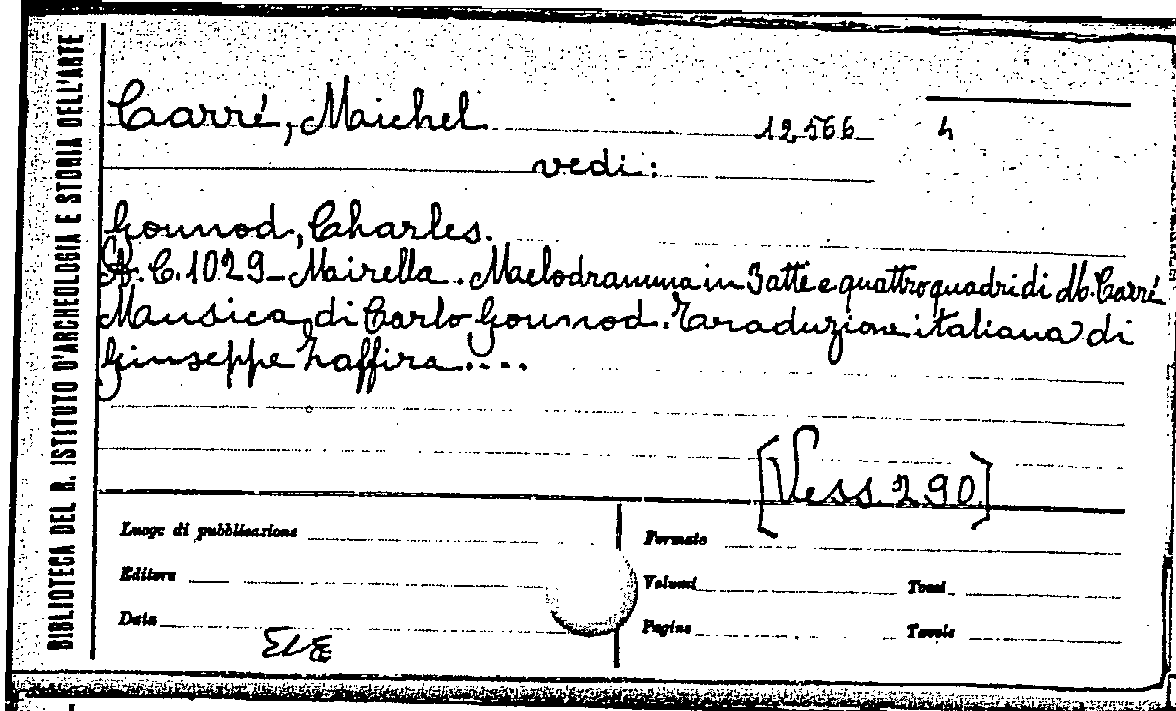 BIBLIOTECA DEL R. ISTITUTO D'ARCHEOLOGIA E STORIA DELL'ARTE
Carré, Maichel 12566 4
vedi:
Gounod, Charles.
A. C. 1029 - Mairella. Maelodramma in 3 atti e quattro quadri di M. Carré
Mausica, di Carlo Gounod. Taraduzione italiana di
Giuseppe Zaffira....
[Vess. 290]
Luogo di pubblicazione
Formato
Editore
Volumi
Tomi
Data
Pagine
Tavole